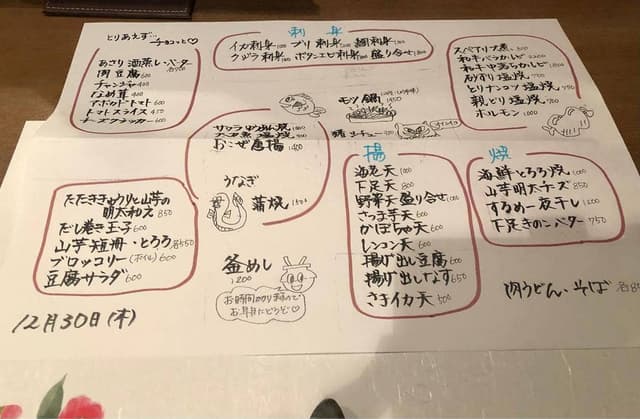 とりあえず… チョコっと♡
あさり酒蒸し・バター
肉豆腐 600
チャンジャ 400
なめ茸 400
アボカドトマト 600
トマトスライス 450
チーズクラッカー 600
刺身
イカ刺身 ブリ刺身 鯛刺身
クジラ刺身 ボタンエビ刺身 盛り合せ
スペアリブ煮
和牛バラカルビ 1200
和牛中落ちカルビ
砂ずり塩焼 750
とりナンコツ塩焼
親どり塩焼 780
ホルモン 1000
モツ鍋 1450
おこぜ唐揚 1400
うなぎ
蒲焼 1500
釜めし
1200
お時間かかりますので
お早目にどうぞ♡
たたききゅうりと山芋の
明太和え 850
だし巻き玉子 600
山芋短冊・とろろ 各550
ブロッコリー(ボイル) 600
豆腐サラダ 600
揚
海老天 1000
下足天 800
野菜天盛り合せ 1000
さつま芋天 600
かぼちゃ天 600
レンコン天 600
揚げ出し豆腐 600
揚げ出しなす 650
さきイカ天 500
焼
海鮮とろろ焼 1000
山芋明太チーズ 850
するめ一夜干し 1200
下足きのこバター 750
肉うどん・そば
12月30日(木)